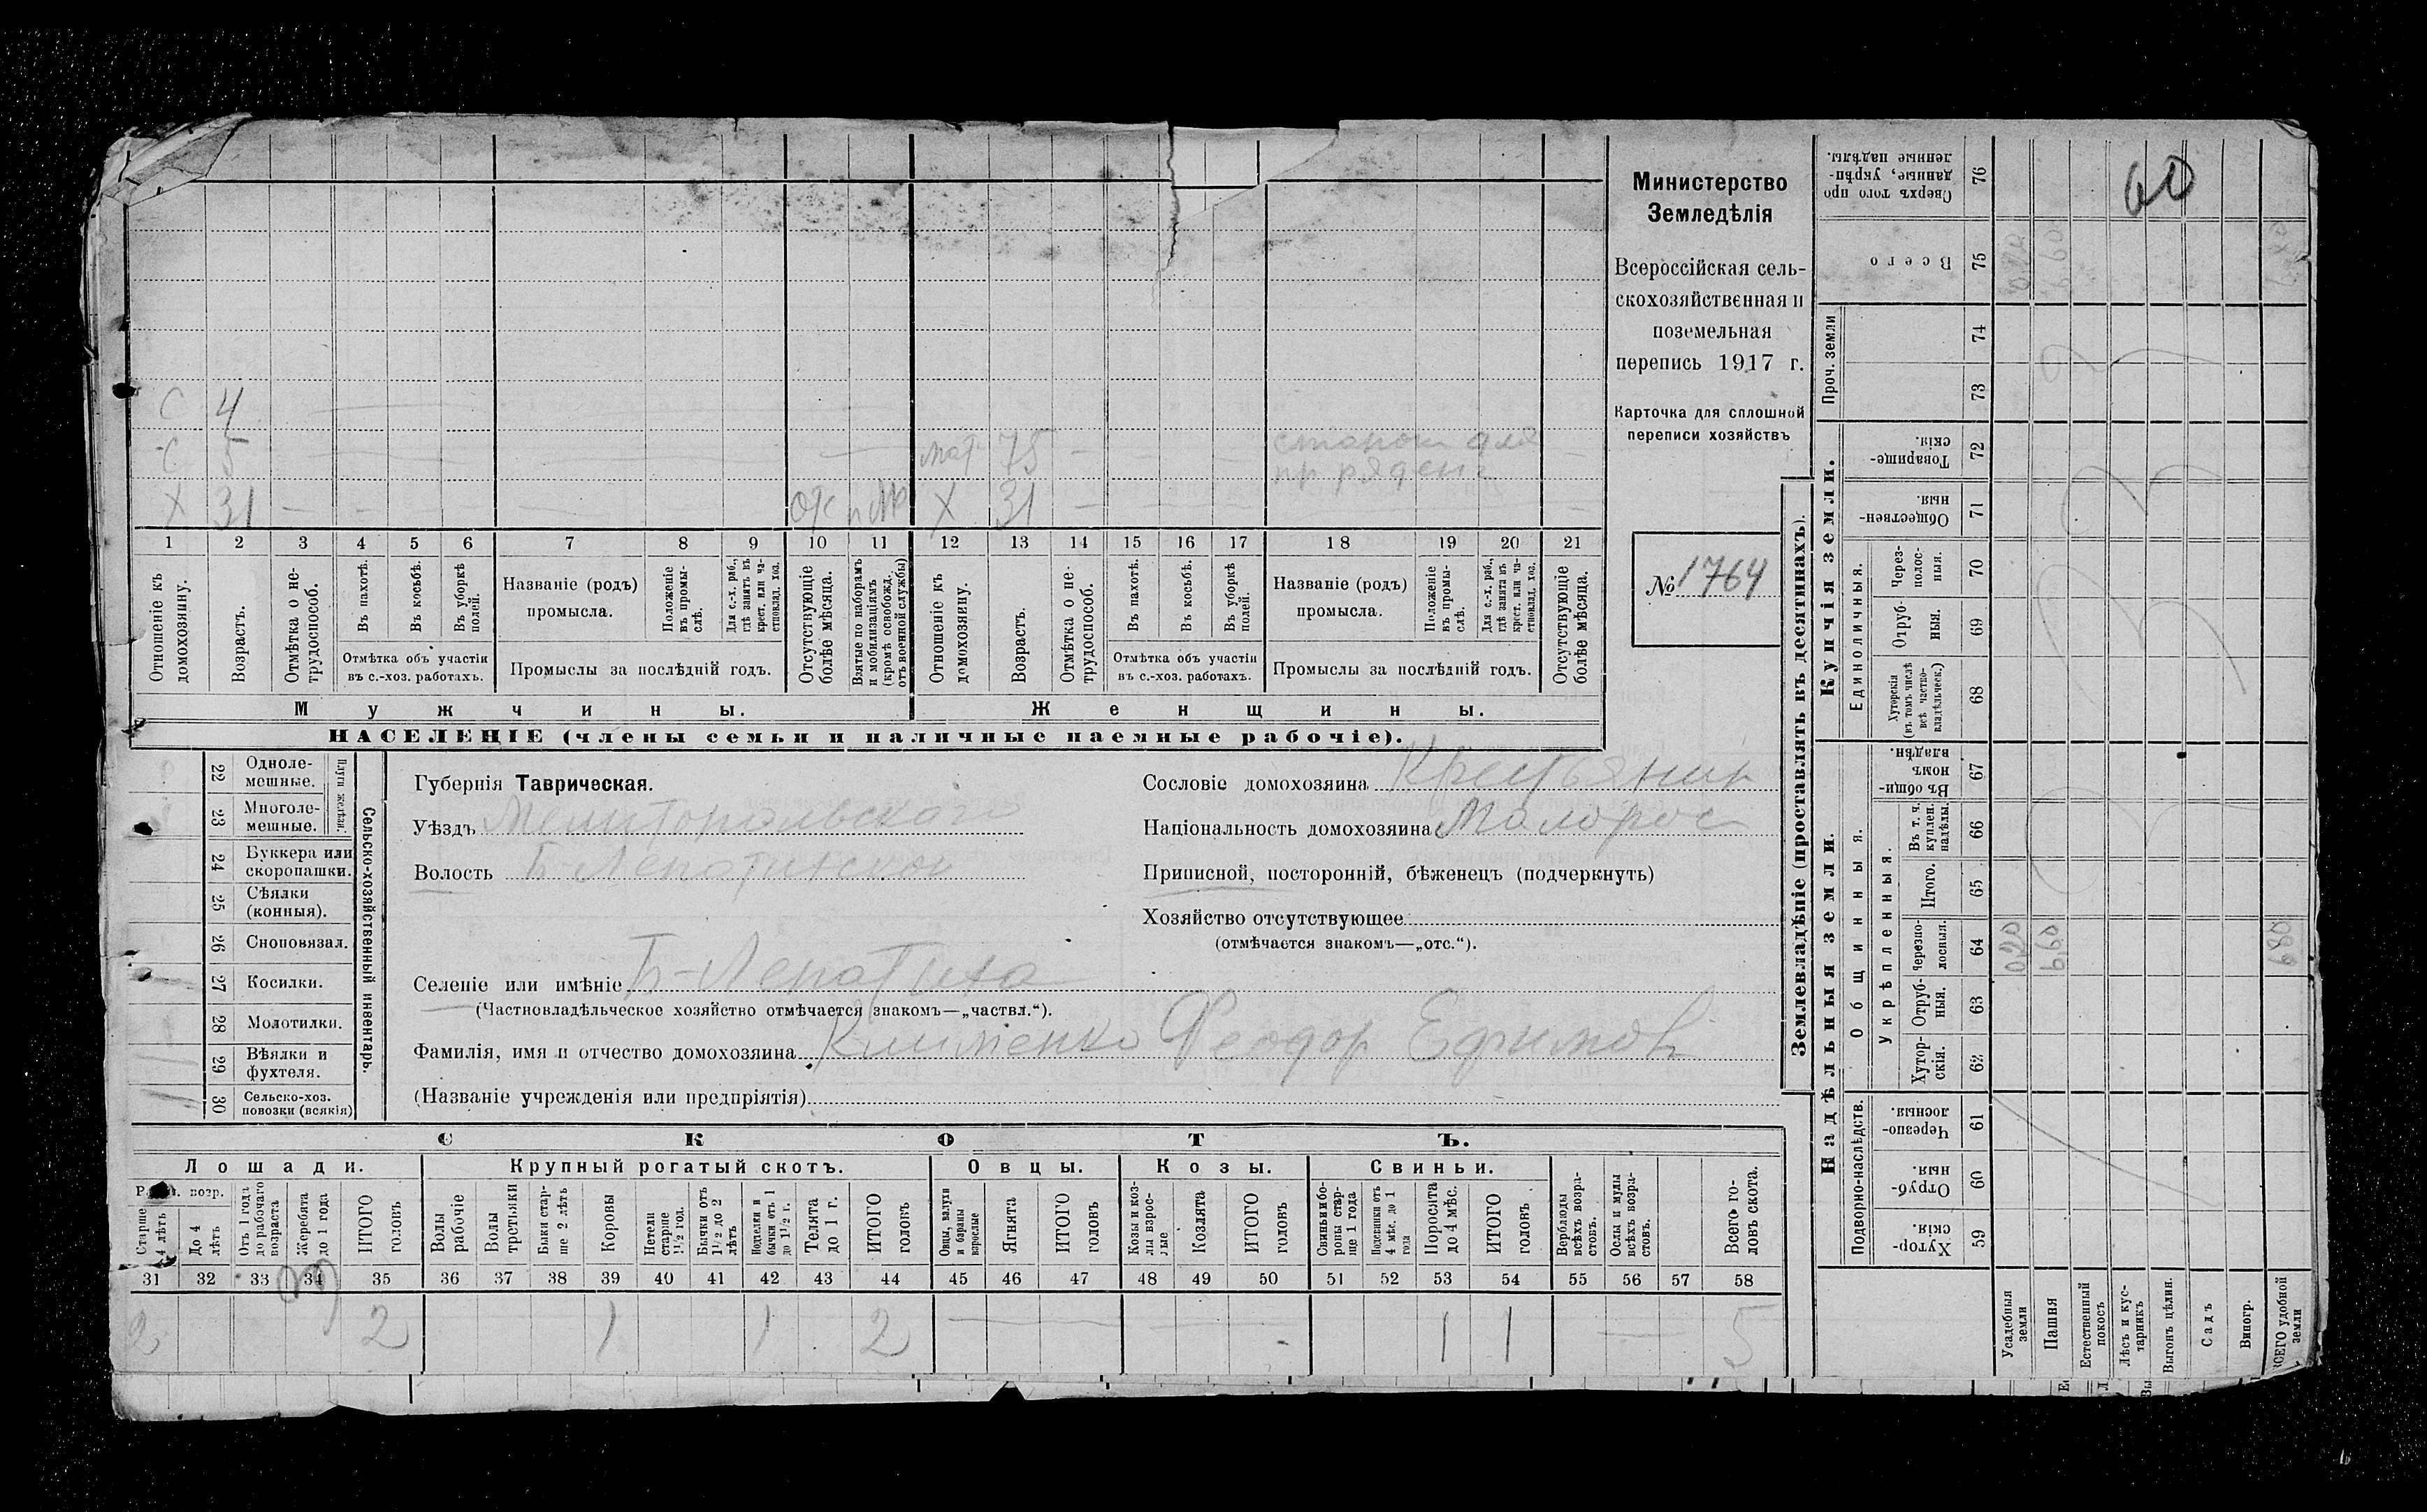 Министерство
Земледѣлія
Всероссійская сель-
скохозяйственная и
поземельная
перепись 1917 г.
Карточка для сплошной
переписи хозяйствъ
№ 1764
С 4
С 5 мат 75 станок для
пр рядени
Х 31 — отс Х 31
1 2 3 4 5 6 7 8 9 10 11 12 13 14 15 16 17 18 19 20 21
Отношеніе къ домохозяину.
Возрастъ.
Отмѣтка о не-трудоспособ.
Въ пахотѣ.
Въ косьбѣ.
Въ уборкѣ полей.
Отмѣтка объ участіи
въ с.-хоз. работахъ.
Названіе (родъ)
промысла.
Положеніе въ промы-слѣ.
Для с.-х. раб., гдѣ занятъ въ крест. или ча-стновлад. хоз.
Промыслы за послѣдній годъ.
Отсутствующіе болѣе мѣсяца.
Взятые по наборамъ и мобилизаціямъ (кромѣ освобожд. отъ военной службы)
Отношеніе къ домохозяину.
Возрастъ.
Отмѣтка о не-трудоспособ.
Въ пахотѣ.
Въ косьбѣ.
Въ уборкѣ полей.
Отмѣтка объ участіи
въ с.-хоз. работахъ.
Названіе (родъ)
промысла.
Положеніе въ промы-слѣ.
Для с.-х. раб., гдѣ занята въ крест. или ча-стновлад. хоз.
Промыслы за послѣдній годъ.
Отсутствующіе болѣе мѣсяца.
Мужчины. Женщины.
НАСЕЛЕНІЕ (члены семьи и наличные наемные рабочіе).
22 Одноле-мешные.
23 Многоле-мешные.
24 Буккера или скоропашки.
25 Сѣялки (конныя).
26 Сноповязал.
27 Косилки.
28 Молотилки.
29 Вѣялки и фухтеля.
30 Сельско-хоз. повозки (всякія)
Сельско-хозяйственный инвентарь.
Губернія Таврическая.
Уѣздъ Мелитопольскаго
Волость Б Лепатинской
Селеніе или имѣніе Б-Лепатиха
(Частновладѣльческое хозяйство отмѣчается знакомъ—„частвл.“).
Фамилія, имя и отчество домохозяина Клименко Феодор Ефимов
(Названіе учрежденія или предпріятія)
Сословіе домохозяина Крестьянин
Національность домохозяина Малорос
Приписной, посторонній, бѣженецъ (подчеркнуть)
Хозяйство отсутствующее
(отмѣчается знакомъ—„отс.“).
СКОТЪ.
Лошади. Крупный рогатый скотъ. Овцы. Козы. Свиньи.
Старше 4 лѣтъ
До 4 лѣтъ
Отъ 1 года до рабочаго возраста
Жеребята до 1 года
ИТОГО головъ
Волы рабочіе
Волы третьяки
Быки стар-ше 2 лѣтъ
Коровы
Нетели старше 1½ год.
Бычки отъ 1½ до 2 лѣтъ
Телки и бычки отъ 1 до 1½ г.
Телята до 1 г.
ИТОГО головъ
Овцы, валухи и бараны взрослые
Ягнята
ИТОГО головъ
Козы и коз-лы взрос-лые
Козлята
ИТОГО головъ
Свиньи и бо-ровы стар-ше 1 года
Подсвинки отъ 4 мѣс. до 1 года
Поросята до 4 мѣс.
ИТОГО головъ
Верблюды всѣхъ возра-стовъ.
Ослы и мулы всѣхъ возра-стовъ.
Всего го-ловъ скота.
31 32 33 34 35 36 37 38 39 40 41 42 43 44 45 46 47 48 49 50 51 52 53 54 55 56 57 58
2 2 1 1 2 1 1 5
Землевладѣніе (проставлять въ десятинахъ).
Купчія земли.
Надѣльныя земли.
Проч. земли
Единоличныя.
Общинныя.
Укрѣпленныя.
Подворно-наслѣдств.
Сверхъ того про данные, укрѣп-ленные надѣлы. 76
60
Всего 75
74
73
Товарище-скія. 72
Обществен-ныя. 71
Через-полос-ныя. 70
Отруб-ныя. 69
Хуторскія (въ томъ числѣ всѣ частно-владѣльческ.) 68
Въ общин-номъ владѣн. 67
Въ т. ч. куплен. надѣлы. 66
Итого. 65
Черезпо-лосныя. 64
Отруб-ныя. 63
Хутор-скія. 62
Черезпо-лосныя. 61
Отруб-ныя. 60
Хутор-скія. 59
Усадебныя земли
Пашня
Естественный покосъ
Лѣсъ и кус-тарникъ
Выгонъ цѣлин.
Садъ
Виногр.
ВСЕГО удобной земли